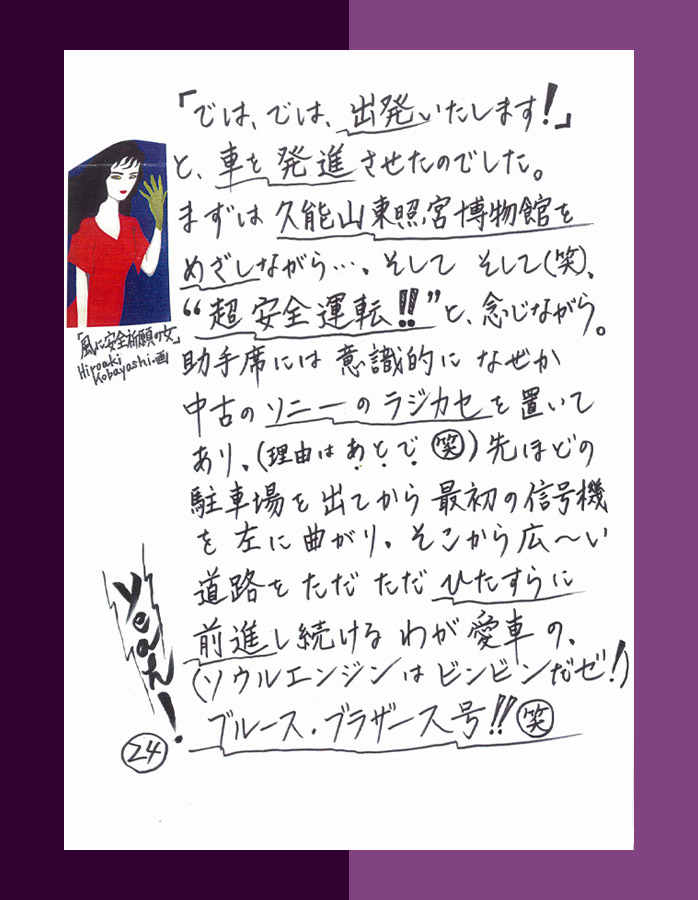 「では、では、出発いたします!」
と、車を発進させたのでした。
まずは久能山東照宮博物館を
めざしながら…、そして そして(笑)、
“超安全運転!!”と、念じながら。
助手席には意識的になぜか
中古のソニーのラジカセを置いて
あり、(理由はあとで(笑))先ほどの
駐車場を出てから最初の信号機
を左に曲がり、そこから広〜い
道路をただただひたすらに
前進し続けるわが愛車の、
(ソウルエンジンはビンビンだぜ!)
ブルース・ブラザース号!!(笑)
「風に安全祈願の女」
Hiroaki
Kobayashi.画
Yeah!
24